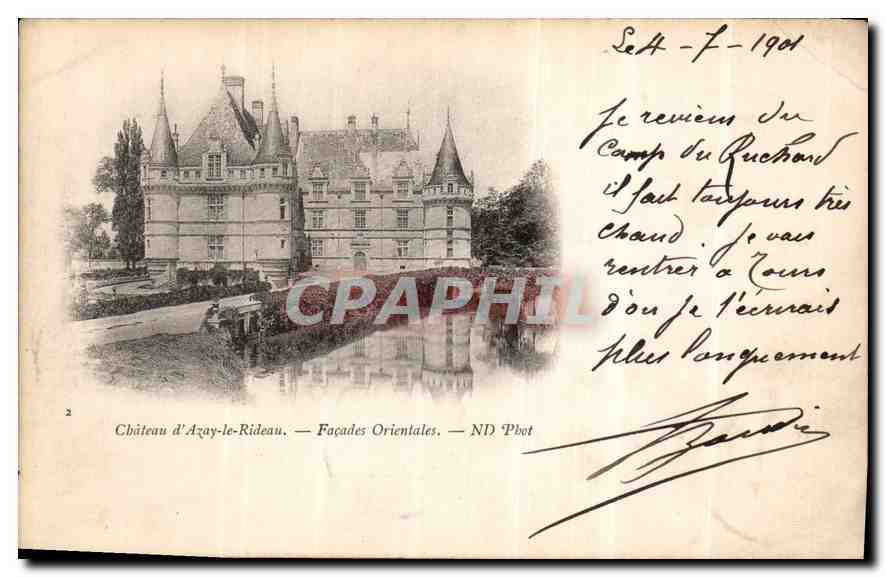 Le 4 - 7 - 1901
Je reviens du
camp du Ruchard
il fait toujours très
chaud. Je vais
rentrer à Tours
d'ou Je t'écrirais
plus longuement
CPAPHIL
2
Château d'Azay-le-Rideau. — Façades Orientales. — ND Phot